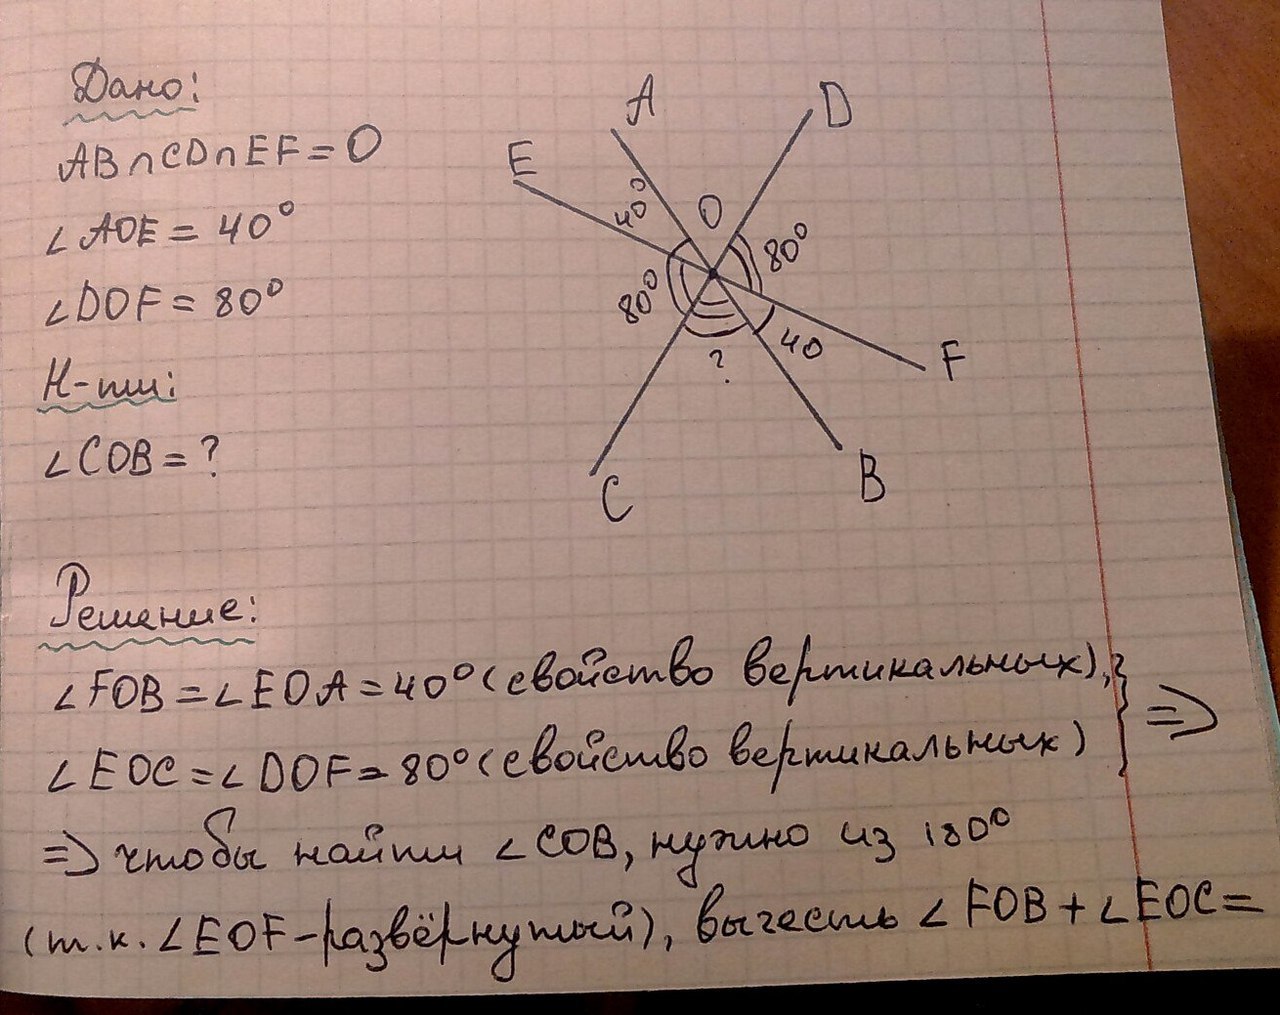 Дано:
AB∩CD∩EF=O
∠AOE = 40°
∠DOF = 80°
Н-ти:
∠COB = ?
A
D
E
40°
O
80°
80°
40
?
F
C
B
Решение:
∠FOB = ∠EOA = 40° (свойство вертикальных), } =>
∠EOC = ∠DOF = 80° (свойство вертикальных)
=> чтобы найти ∠COB, нужно из 180°
(т.к. ∠EOF - развёрнутый), вычесть ∠FOB + ∠EOC =